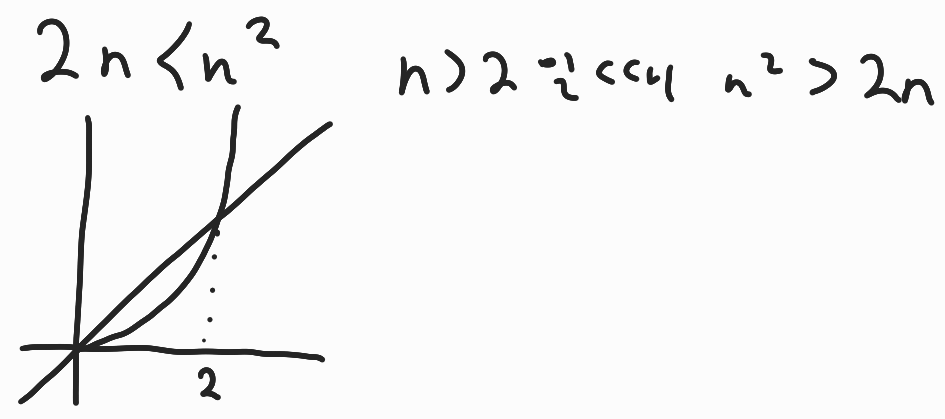 2n < n²
n > 2 n² > 2n
2